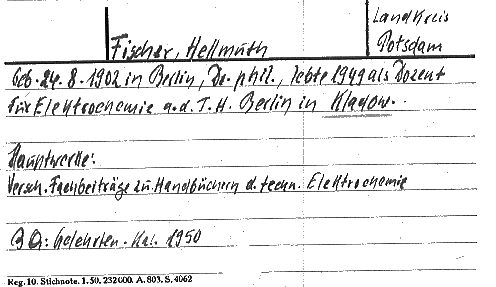 Landkreis
Fischer, Hellmuth Potsdam
Geb. 24. 8. 1902 in Berlin, Dr. phil., lebte 1949 als Dozent
für Elektrochemie a. d. T. H. Berlin in Kladow.
Hauptwerke:
Versch. Fachbeiträge zu Handbüchern d. techn. Elektrochemie
BQ: Gelehrten-Kal. 1950
Reg. 10. Stichnote. 1. 50. 232000. A. 803. S. 4062